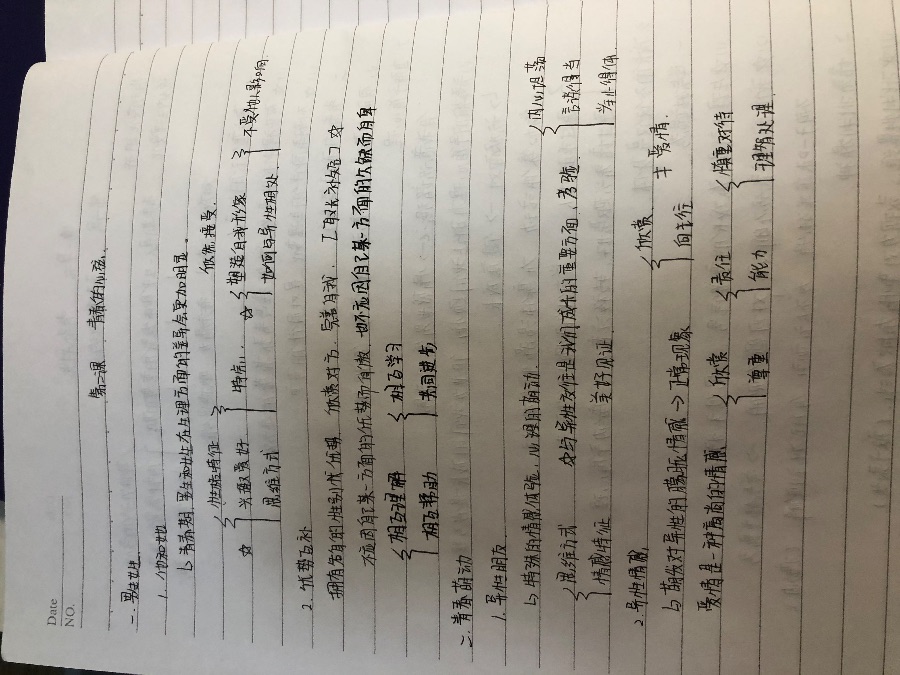 Date
NO.
第二课 青春的心弦
一. 男生女生
1. 他和她
↳ 青春期, 男生和女生在生理方面的差异会更加明显。
性格特征 欣然接受
☆ 兴趣爱好 特点 ☆ 塑造自我形象 不受他人影响
思维方式 如何与异性相处
2. 优势互补
拥有各自的性别优势 欣赏对方, 完善自我,
不应因自己某一方面的优势而自傲, 也不应因自己某一方面的欠缺而自卑
相互理解 相互学习
相互帮助 共同进步
二. 青春萌动
1. 异性朋友
↳ 特殊的情感体验, 心理的萌动 内心坦荡
思维方式 ☆与异性交往是我们成长的重要方面 考验 言谈得当
情感特征 美好见证 举止得体
2. 异性情感
↳ 萌发对异性的朦胧情感 → 正常现象 欣赏 向往 ≠ 爱情.
爱情是一种高尚的情感 欣赏 责任 慎重对待
尊重 能力 理智处理